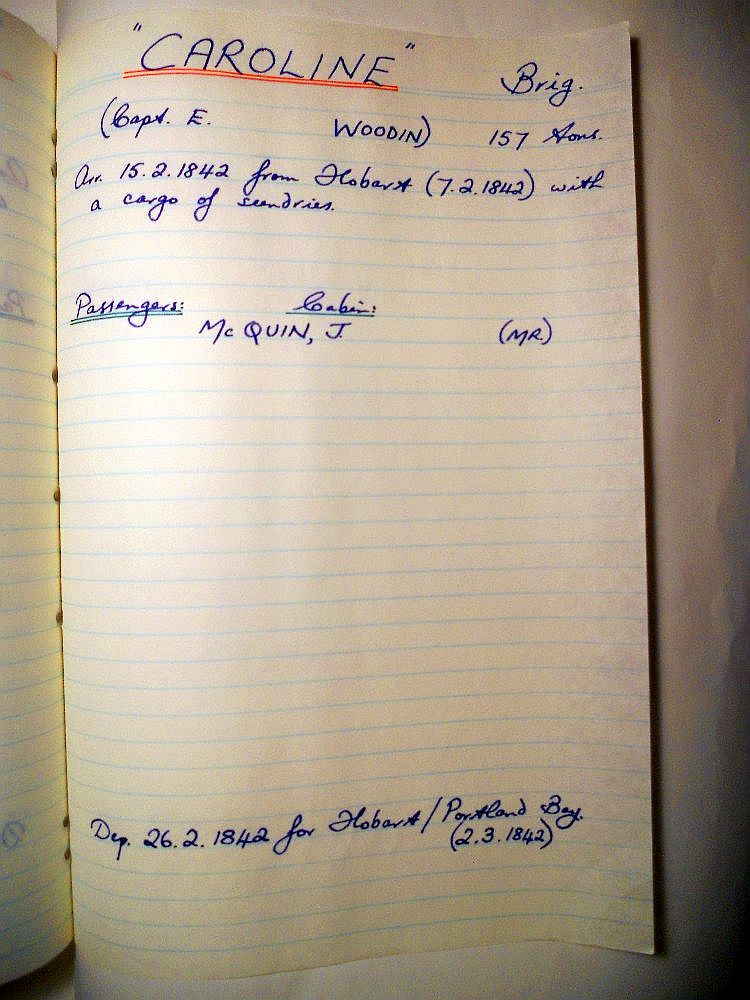 "CAROLINE" Brig.
(Capt. E. WOODIN) 157 tons.
Arr. 15.2.1842 from Hobart (7.2.1842) with
a cargo of sundries.
Passengers: Cabin:
McQUIN, J. (MR.)
Dep. 26.2.1842 for Hobart/Portland Bay.
(2.3.1842)